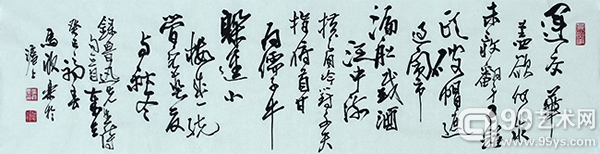 運交華
盖欲何求
未敢翻身已
碰頭破帽遮
颜过闹市
漏船载酒
泛中流
横眉冷对千夫
指俯首甘
为孺子牛
躲進小
楼成一统
管
录鲁迅先生诗
癸巳初春
馬
滬上
99艺术网
www.99ys.com